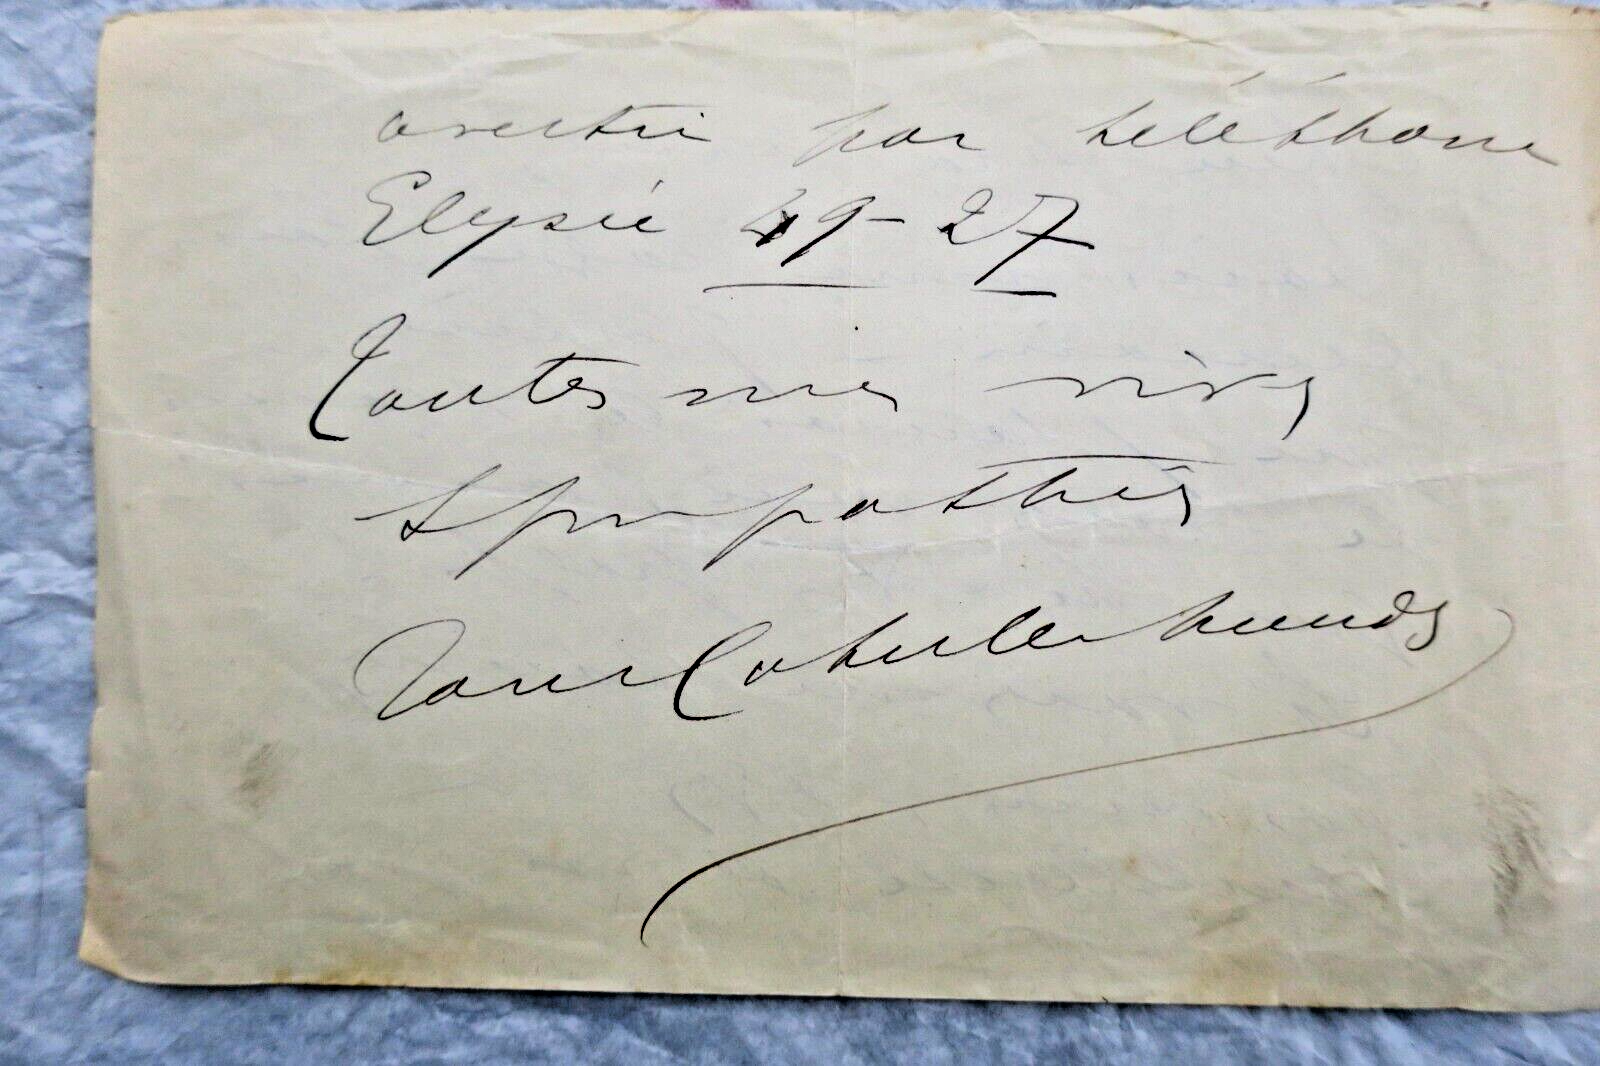 avertir par téléphone
Elysée 49-27
Toutes mes vives
sympathies